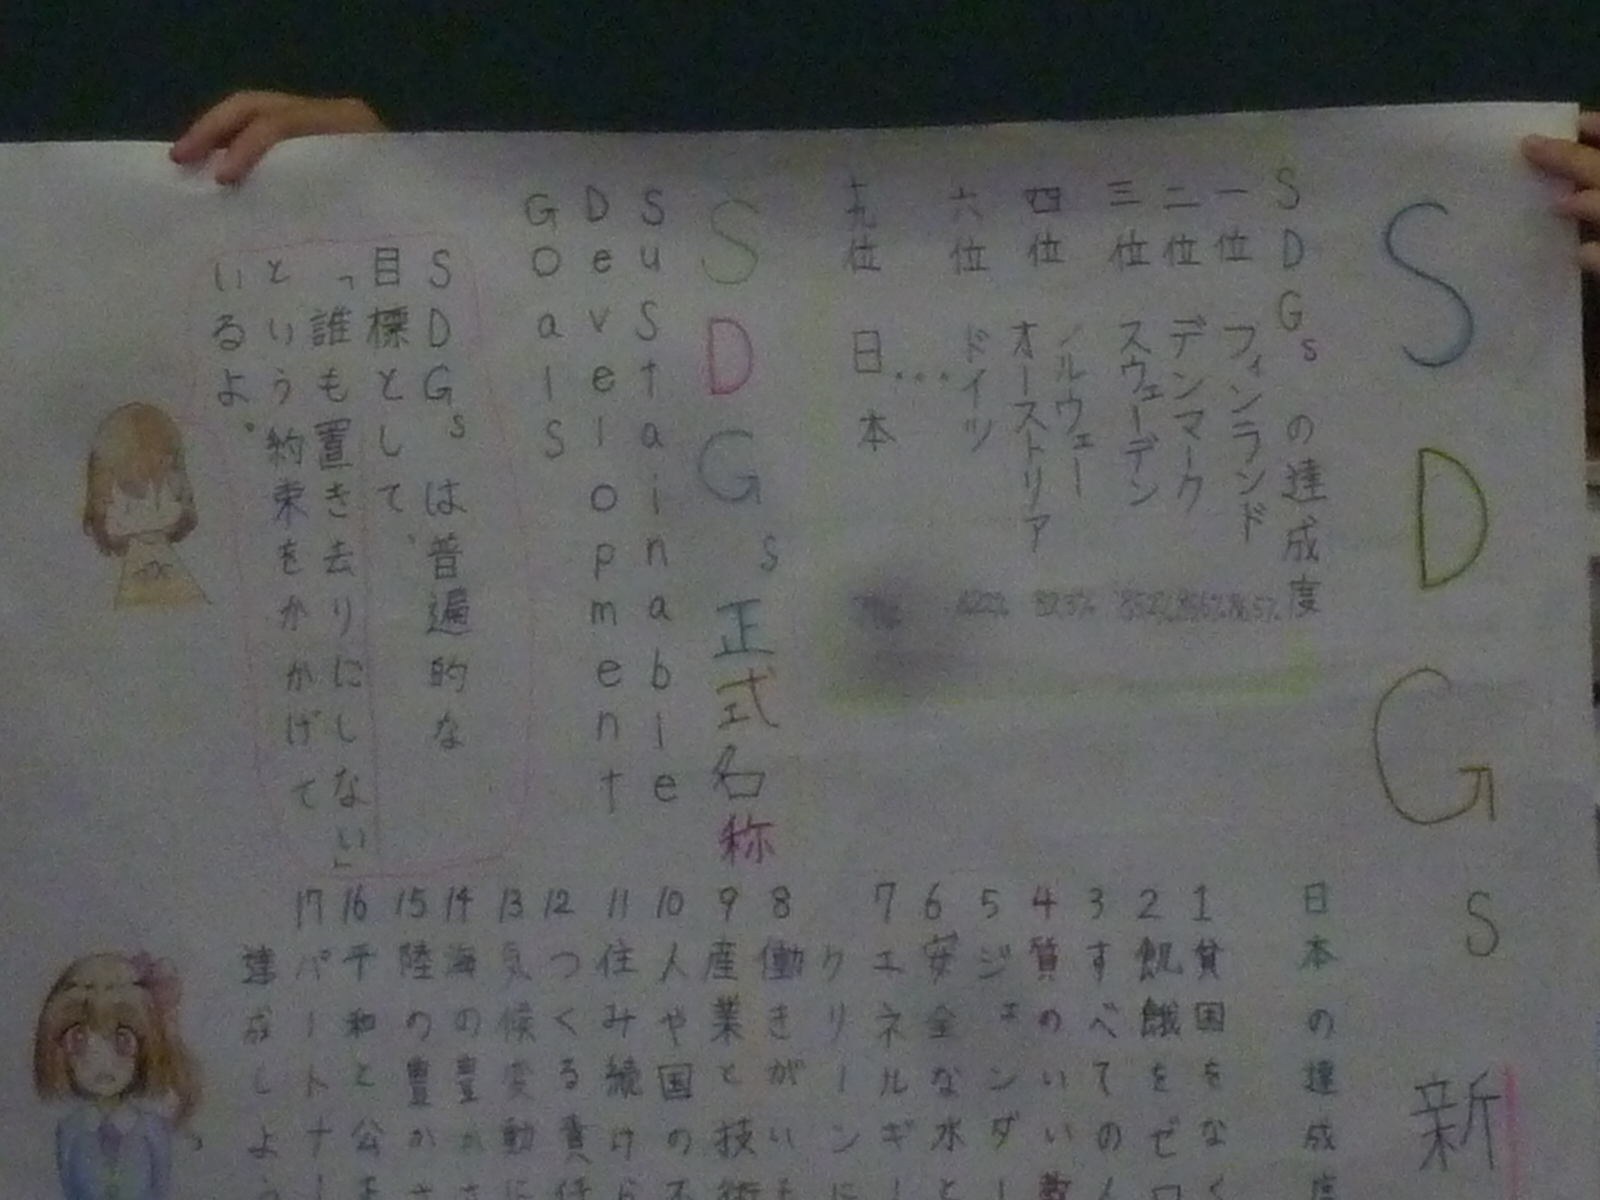 SDGs 新
SDGsの達成度
一位 フィンランド 86.5%
二位 デンマーク
三位 スウェーデン
四位 ノルウェー
オーストリア
六位 ドイツ
…
十九位 日本
日本の達成度
1 貧困をなく
2 飢餓をゼロ
3 すべての人
4 質のいい教
5 ジェンダー
6 安全な水と
7 エネルギー
クリーンに
8 働きがいも
9 産業と技術
10 人や国の不
11 住み続けら
12 つくる責任
13 気候変動に
14 海の豊かさ
15 陸の豊かさ
16 平和と公正
17 パートナー
達成しよう
SDGs正式名称
Sustainable
Development
Goals
SDGsは普遍的な
目標として、
「誰も置き去りにしない」
という約束をかかげて
いるよ。